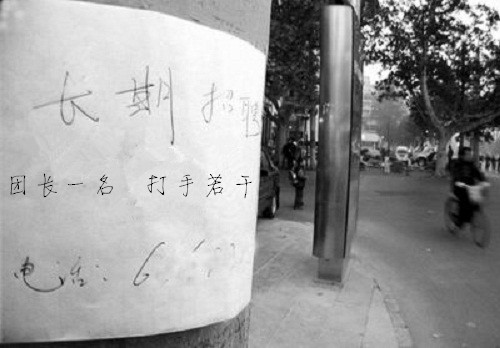 长期 招聘
团长一名 打手若干
电话: 6